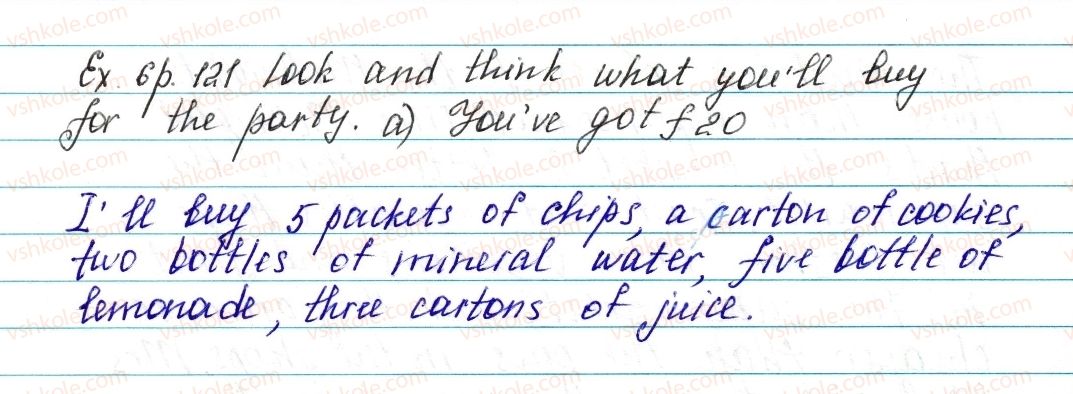 Ex. 6 p. 121 Look and think what you'll buy
for the party. a) You've got £20
I'll buy 5 packets of chips, a carton of cookies,
two bottles of mineral water, five bottle of
lemonade, three cartons of juice.